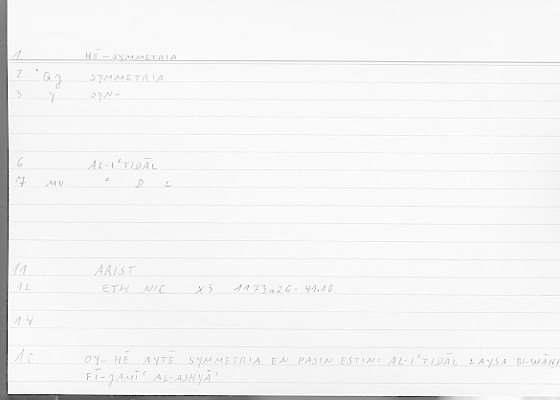 1 HĒ-SYMMETRIA
2 °Qg SYMMETRIA
3 y SYN-
6 AL-IʿTIDĀL
7 MV ʿ D L
11 ARIST
12 ETH NIC X3 1173a26 = 41.10
14
15 OY- HĒ AYTĒ SYMMETRIA EN PASIN ESTINI AL-IʿTIDĀL LAYSA BI-WĀḤI
FĪ-JAMĪʿ AL-ASHYĀʾ